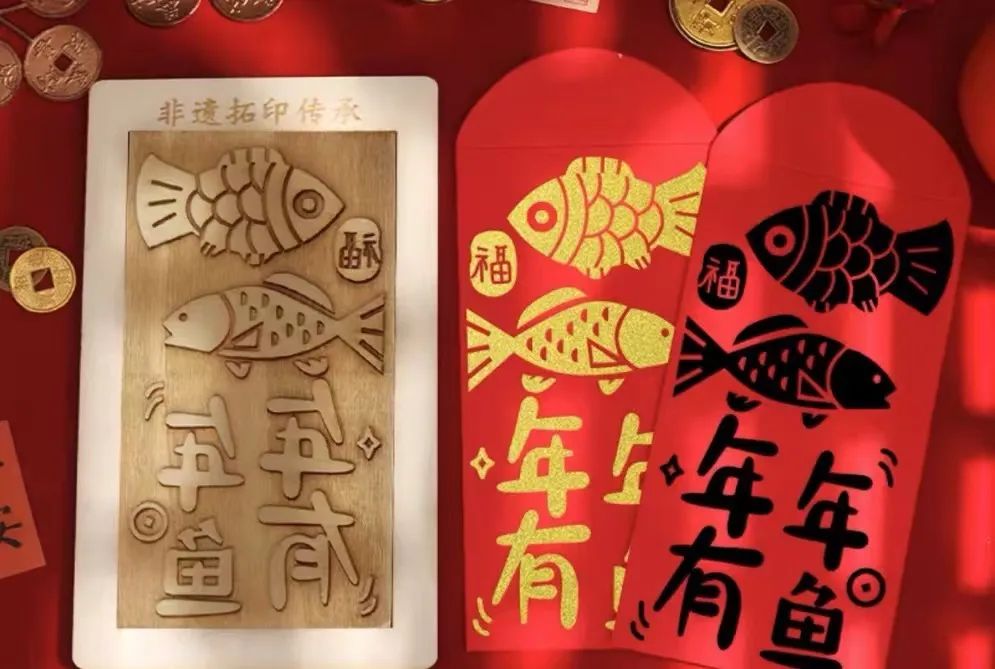 非遗拓印传承
福
年年
有鱼
福
年年
有
福
年年
有鱼